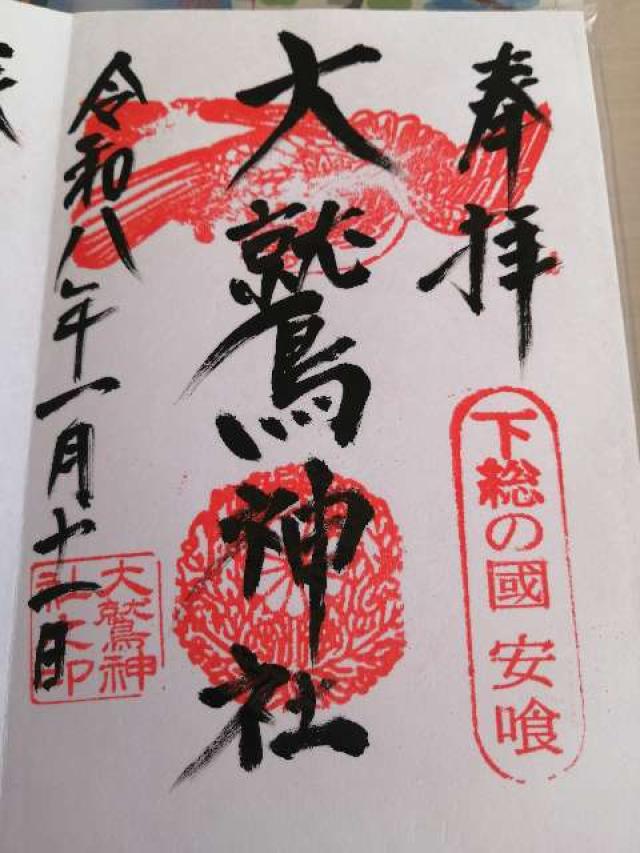 奉拝
下総の國 安喰
大鷲神社
令和八年一月十一日
大鷲神
社之印